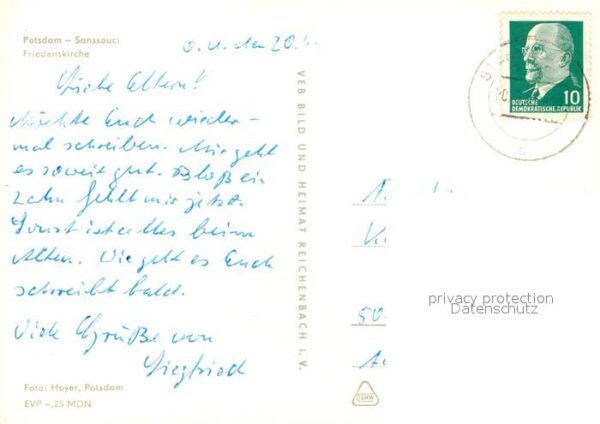 Potsdam – Sanssouci
Friedenskirche
O.U. den 20.
Liebe Eltern!
Möchte Euch wieder-
mal schreiben. Mir geht
es soweit gut. Bloß ein
Zahn fehlt mir jetzt.
Sonst ist alles beim
Alten. Wie geht es Euch
schreibt bald.
Viele Grüße von
Siegfried
Foto: Hoyer, Potsdam
EVP –,25 MDN
VEB BILD UND HEIMAT REICHENBACH I. V.
DEUTSCHE
DEMOKRATISCHE REPUBLIK
10
50
privacy protection
Datenschutz